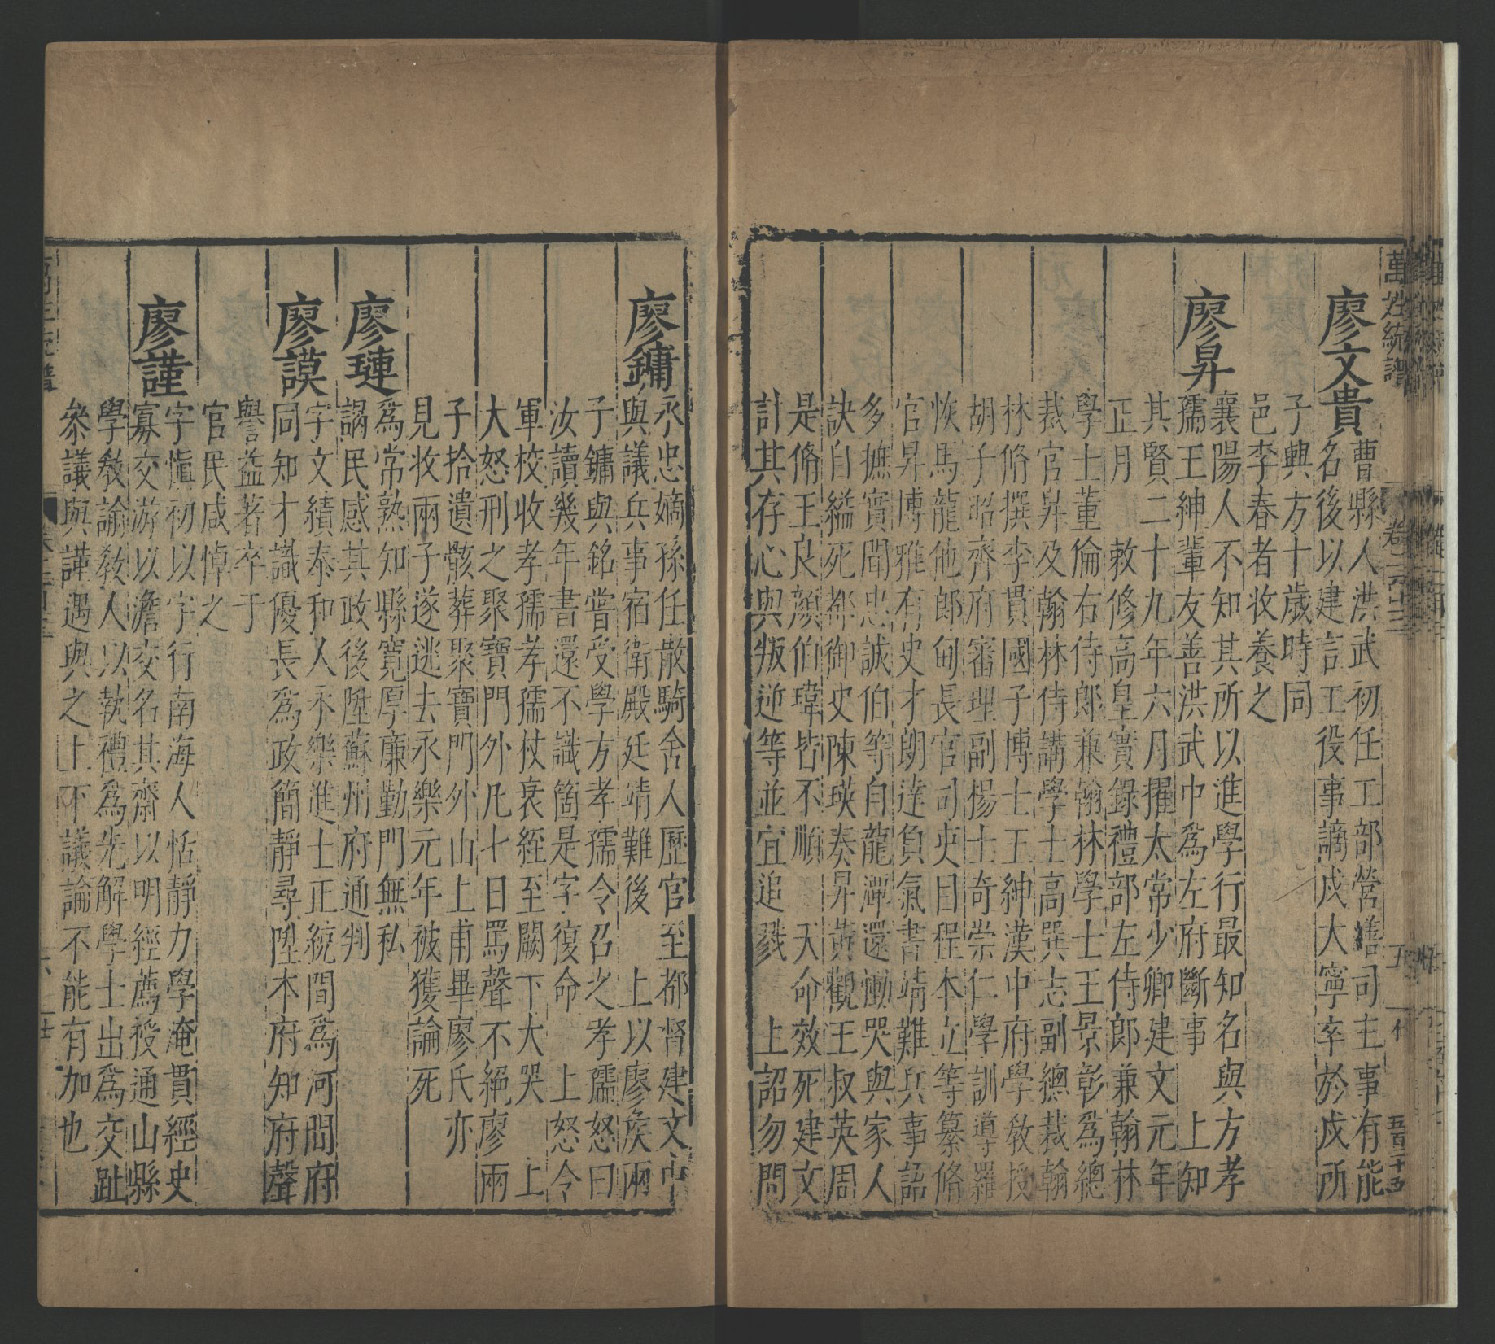 萬姓統譜
卷一百三
五
廖文貴
曹縣人洪武初任工部營繕司主事有能
名後以建言工役事謫戍大寧卒於戍所
子興方十歲時同
邑李春者收養之
廖昇
襄陽人不知其所以進學行最知名與方孝
孺王紳輩友善洪武中為左府斷事 上知
其賢二十九年六月擢太常少卿建文元年
正月 敕修高皇實錄禮部左侍郎兼翰林
學士董倫右侍郎兼翰林學士王景彰為總
裁官昇及翰林侍講學士高巽志副總裁翰
林脩撰李貫國子博士王紳漢中府學教授
胡子昭齊府審理副楊士奇崇仁學訓導羅
恢馬龍他郎甸長官司吏目程本立等纂脩
官昇博雅有史才朗達負氣書靖難兵事詔
多摭實聞忠誠伯等自龍潭還慟哭與家人
訣自縊死都御史陳瑛奏昇黃觀王叔英周
是脩王良顏伯瑋皆不順 天命效死建文
計其存心與叛逆等並宜追戮 上詔勿問
廖鏞
永忠嫡孫任散騎舍人歷官至都督建文中
與議兵事宿衛殿廷靖難後 上以廖侯兩
子鏞與銘嘗受學方孝孺令召之孝孺怒曰
汝讀幾年書還不識箇是字復命 上怒令
軍校收孝孺孝孺杖衰絰至闕下大哭 上
大怒刑之聚寶門外凡七日罵聲不絕廖兩
子拾遺骸葬聚寶門外山上甫畢廖氏亦
見收兩子遂逃去永樂元年被獲論死
廖璉
為常熟知縣寬厚廉勤門無私
謁民感其政後陞蘇州府通判
廖謨
字文績泰和人永樂進士正統間為河間府
同知才識優長為政簡靜尋陞本府知府聲
譽益著卒于
官民咸悼之
廖謹
字慎初以字行南海人恬靜力學淹貫經史
寡交游以澹交名其齋以明經薦授通山縣
學教諭教人以執禮為先解學士出為交趾
參議與謹遇與之上下議論不能有加也